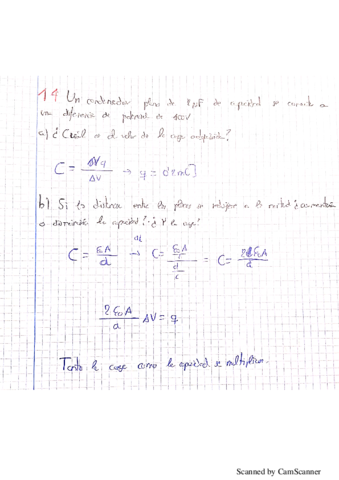 14 Un condensador plano de 8 µF de capacidad se conecta a
una diferencia de potencial de 100V
a) ¿Cuál es el valor de la carga adquirida?
C = q/ΔV → q =
b) Si la distancia entre las placas se reduce a la mitad ¿aumentará
o disminuirá la capacidad? ¿Y la carga?
C = ε₀A/d → C = ε₀A/(d/2) = C = 2ε₀A/d
2ε₀A/d ΔV = q
Tanto la carga como la capacidad se multiplican.
Scanned by CamScanner